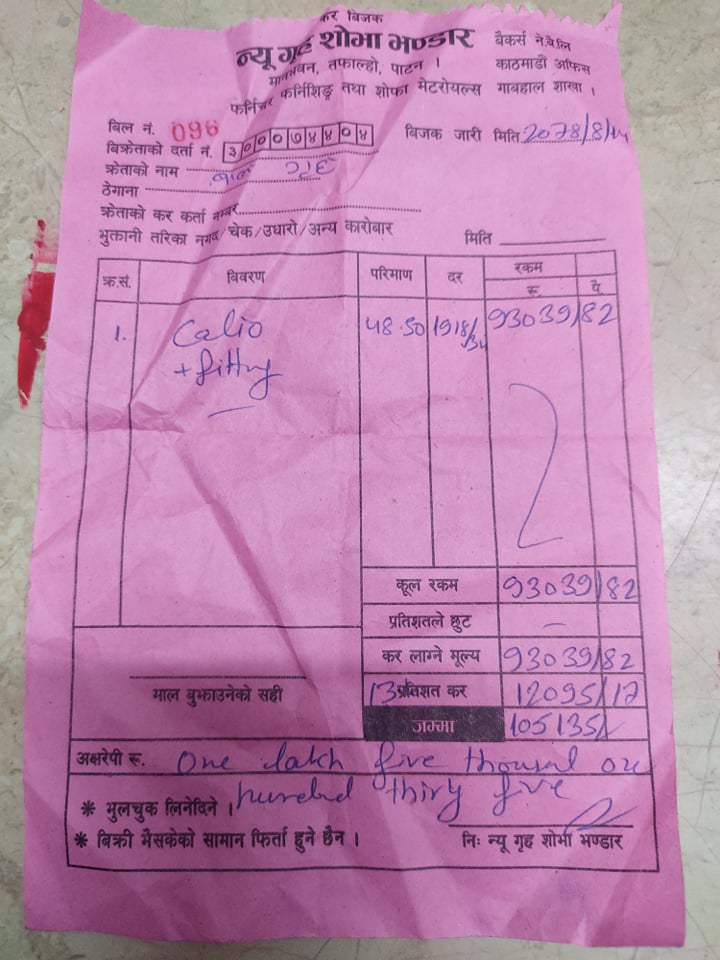 कर बिजक
न्यू गृह शोभा भण्डार
बैंकर्स ने.बै.लि
मानभवन, तफाल्हो, पाटन ।
काठमाडौं अफिस
फर्निचर फर्निशिङ्ग तथा शोफा मेटरोयल्स गाबहाल शाखा ।
बिल नं. 096
बिक्रेताको दर्ता नं. ३०००७४४०४
बिजक जारी मिति 2078/8/14
क्रेताको नाम बाल गृह
ठेगाना
क्रेताको कर कर्ता नम्बर
भुक्तानी तरिका नगद/चेक/उधारो/अन्य कारोबार
मिति
क्र.सं. विवरण परिमाण दर रकम
रू. पै.
1. Calio 48.50 1918/34 93039/82
+ fitting
कूल रकम 93039/82
प्रतिशतले छुट –
कर लाग्ने मूल्य 93039/82
13 प्रतिशत कर 12095/17
माल बुझाउनेको सही
जम्मा 105135/
अक्षरेपी रू. One lakh five thousand one
hundred thirty five
* भुलचुक लिनेदिने ।
* बिक्री भैसकेको सामान फिर्ता हुने छैन ।
निः न्यू गृह शोभा भण्डार